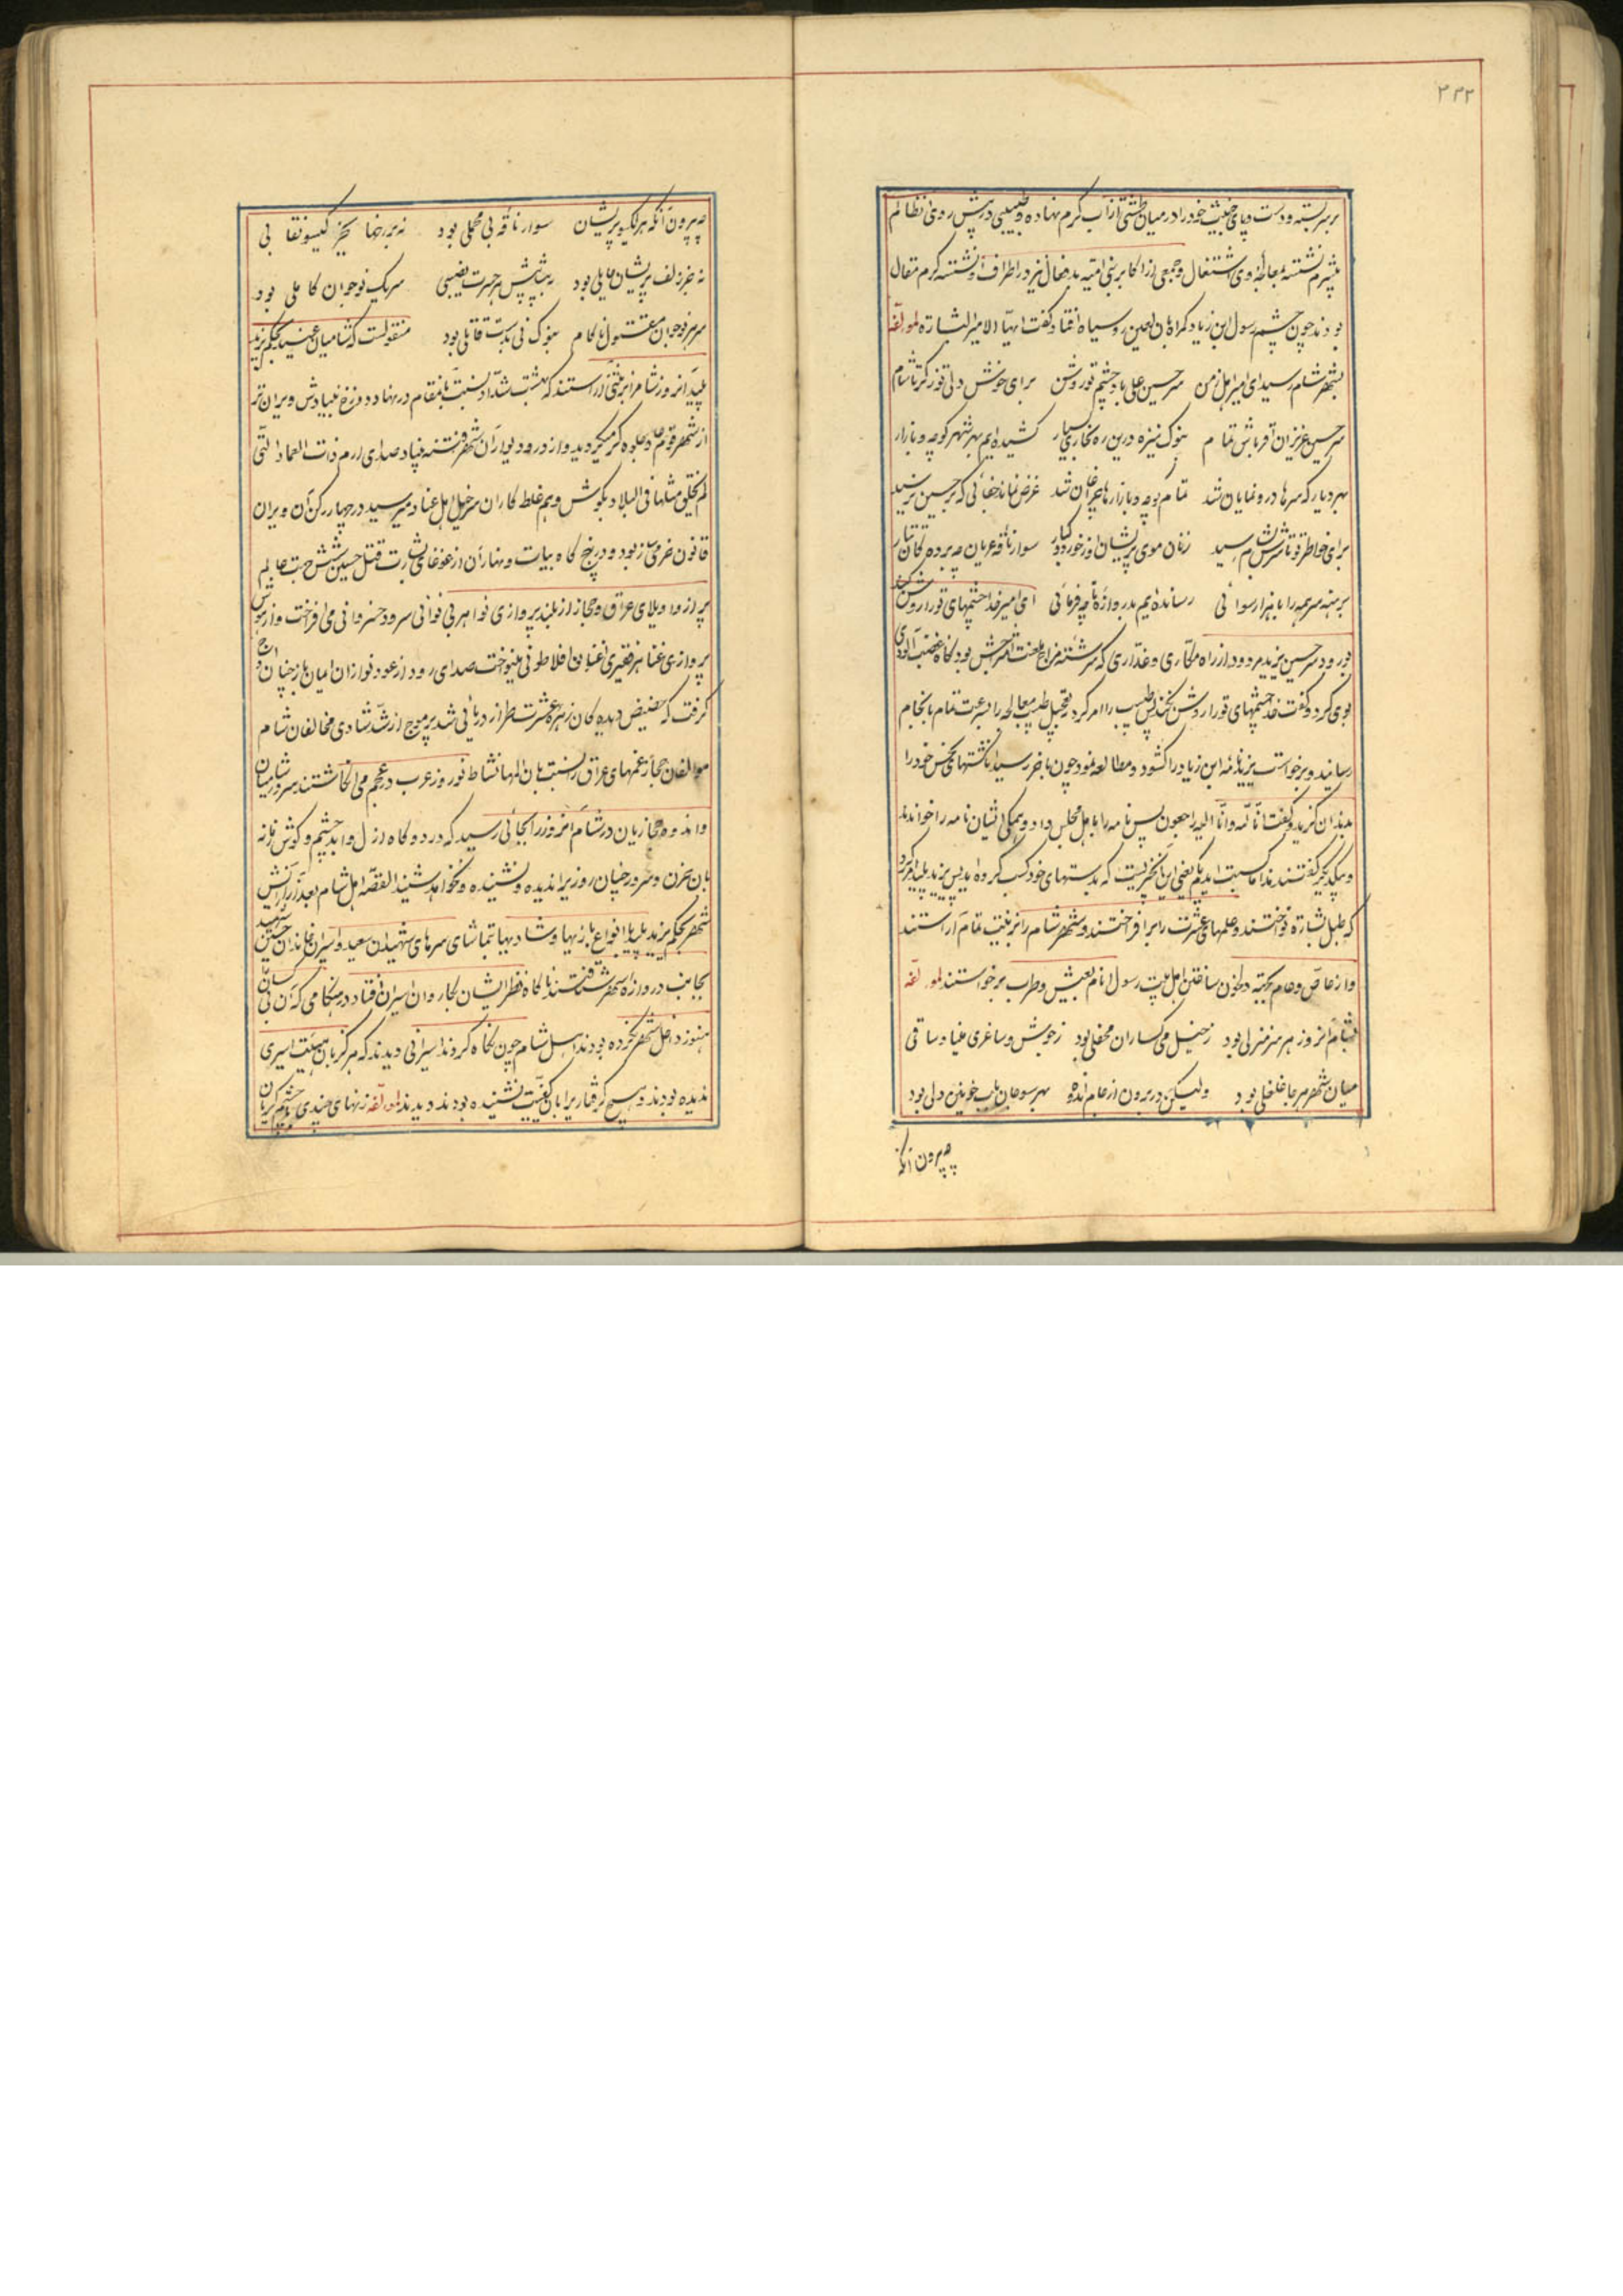 ۳۳۲
بر سر بسته و دست و پای خبیث خود را در میان طشتی از آب گرم نهاده و طبیبی در پیش روی آن ظالم
بیشرم نشسته بمعالجهٔ وی اشتغال و جمعی از اکابر بنی امیه بدفعال نیز در اطراف او نشسته گرم مقال
بودند چون چشم رسول ابن زیاد گمراه بان لعین روسیاه افتاد گفت ایها الامیر البشارة لمولفه
بشهر شام رسید ای امیر اهل زمن سر حسین علی باد چشم تو روشن برای خوشی دلی تو ز کربلا تا شام
سر حسین عزیزان اقرباش تمام بنوک نیزه درین ره بخاری بسیار کشیده ایم بهر شهر کوچه و بازار
بهر دیار که سرها درو نمایان شد تمام کوچه و بازارها چراغان شد غرض نماند جفائی که بر حسین نرسید
برای خواطر تو تا سرش بشام رسید زنان موی پریشان او ز خورد و کبار سوار ناقه عریان چه برده گان تتار
برهنه سر همه را با هزار رسوائی رسانده ایم بدروازه تا چه فرمائی ای امیر خدا چشمهای تو را روشن کند
بورود سر حسین یزید مردود از راه مکاری و غداری که سرشته مزاج لعنت امتزاجش بود نگاه غضب آلودی
بوی کرد و گفت خدا چشمهای تو را روشن نکند پس طبیب را امر کرد بتعجیل طبیب معالجه را بسرعت تمام بانجام
رسانید و برخواست یزید نامه ابن زیاد را گشود و مطالعه نمود چون باخر رسید انگشتهای نجس خود را
بدندان گزید و گفت انا لله و انا الیه راجعون پس نامه را باهل مجلس داد و همگی ایشان نامه را خواندند
و بیکدیگر گفتند هذا ما کسبت یدیکم یعنی این چیزیست که بدستهای خود کسب کرده اید پس یزید پلید امر کرد
که طبل بشارة نواختند و علمهای عشرت را برافراختند و شهر شام را بزینت تمام آراستند
و از خاص و عام بجهة دلخون ساختن اهل بیت رسول انام بعیش و طرب برخواستند لمولفه
بشام آنروز هر سر منزلی بود ز خیل می گساران محفلی بود ز جوش و ساغری مینا و ساقی
میان شهر هر جا غلغلی بود ولیکن در برون از عام انبوه بهر سو جان بلب خونین دلی بود
چه بیرون آنکه
چه بیرون آنکه هر گیسو پریشان سوار ناقه بی محملی بود نه بر رخها بجز گیسو نقابی
نه جز زلف پریشان حایلی بود به پیش پیش هر حسرت نصیبی سر یک نوجوان کاملی بود
سر هر نوجوان مقتول ناکام بنوک نی بدست قاتلی بود منقولست که شامیان عنید بحکم یزید
پلید آنروز شام را بزینتی آراستند که بهشت شداد نسبت بانمقام در نهاد دوزخ نبیادش ویران تر
از شهر قوم عاد جلوه گر میگردید و از در و دیوار آن شهر فتنه بنیاد صدای ارم ذات العماد التی
لم یخلق مثلها فی البلاد بگوش وهم غلط کاران سرخیل اهل عناد میرسید در چهار رکن آن ویران
قانون خرمی ساز بود و در پنج گاه بیات و نهار آن از غوغای بشارت قتل حسین شش جهت عالم
پر از واویلای عراق و حجاز از بلند پروازی نوا هر بی نوائی سرود خسروانی می افراخت و از سوش
پردازی غنا هر فقیری اغنیانه افلاطونی مینواخت صدای رود از عود نوازان امیان باز چنان اوج
گرفت که حضیض دیده گان زهره عشرت طراز دریائی شد پر موج از شد شادی مخالفان شام
موالفان حجاز غمهای عراق را نسبت بان المها نشاط نوروز عرب در عجم می انگاشتند سرور شامیان
و اندوه حجازیان در شام آنروز را بجائی رسید که در دو گاه ازل و ابد چشم و گوش زمانه
بان حزن و سرور چنان روزیرا ندیده و نشنیده و نخواهد شنید القصه اهل شام بعد از آرایش
شهر بحکم یزید پلید با انواع بازیها و شادیها بتماشای سرهای شهیدان سعید و اسیران خاندان حسین شهید
بجانب دروازه شهر شتافتند ناگاه نظر ایشان بکاروان اسیران افتاد در هنگامی که آن بی کسان
هنوز داخل شهر نکرده بودند اهل شام چون نگاه کردند اسیرانی دیدند که هرگز بان هیئت اسیری
ندیده بودند و هیچ گرفتاریرا بان کیفیت نشنیده بودند دیدند لمولفه زنهای چندی با چشم گریان